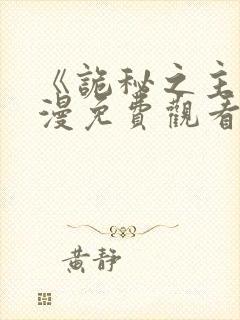 《詭秘之主
漫免費觀看
黃靜